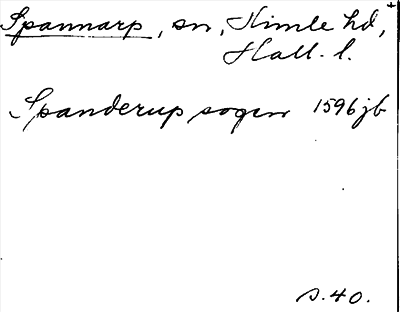 Spannarp, sn, Himle hd,
Hall. l.
Spanderup sogen 1596 jb
s. 40.